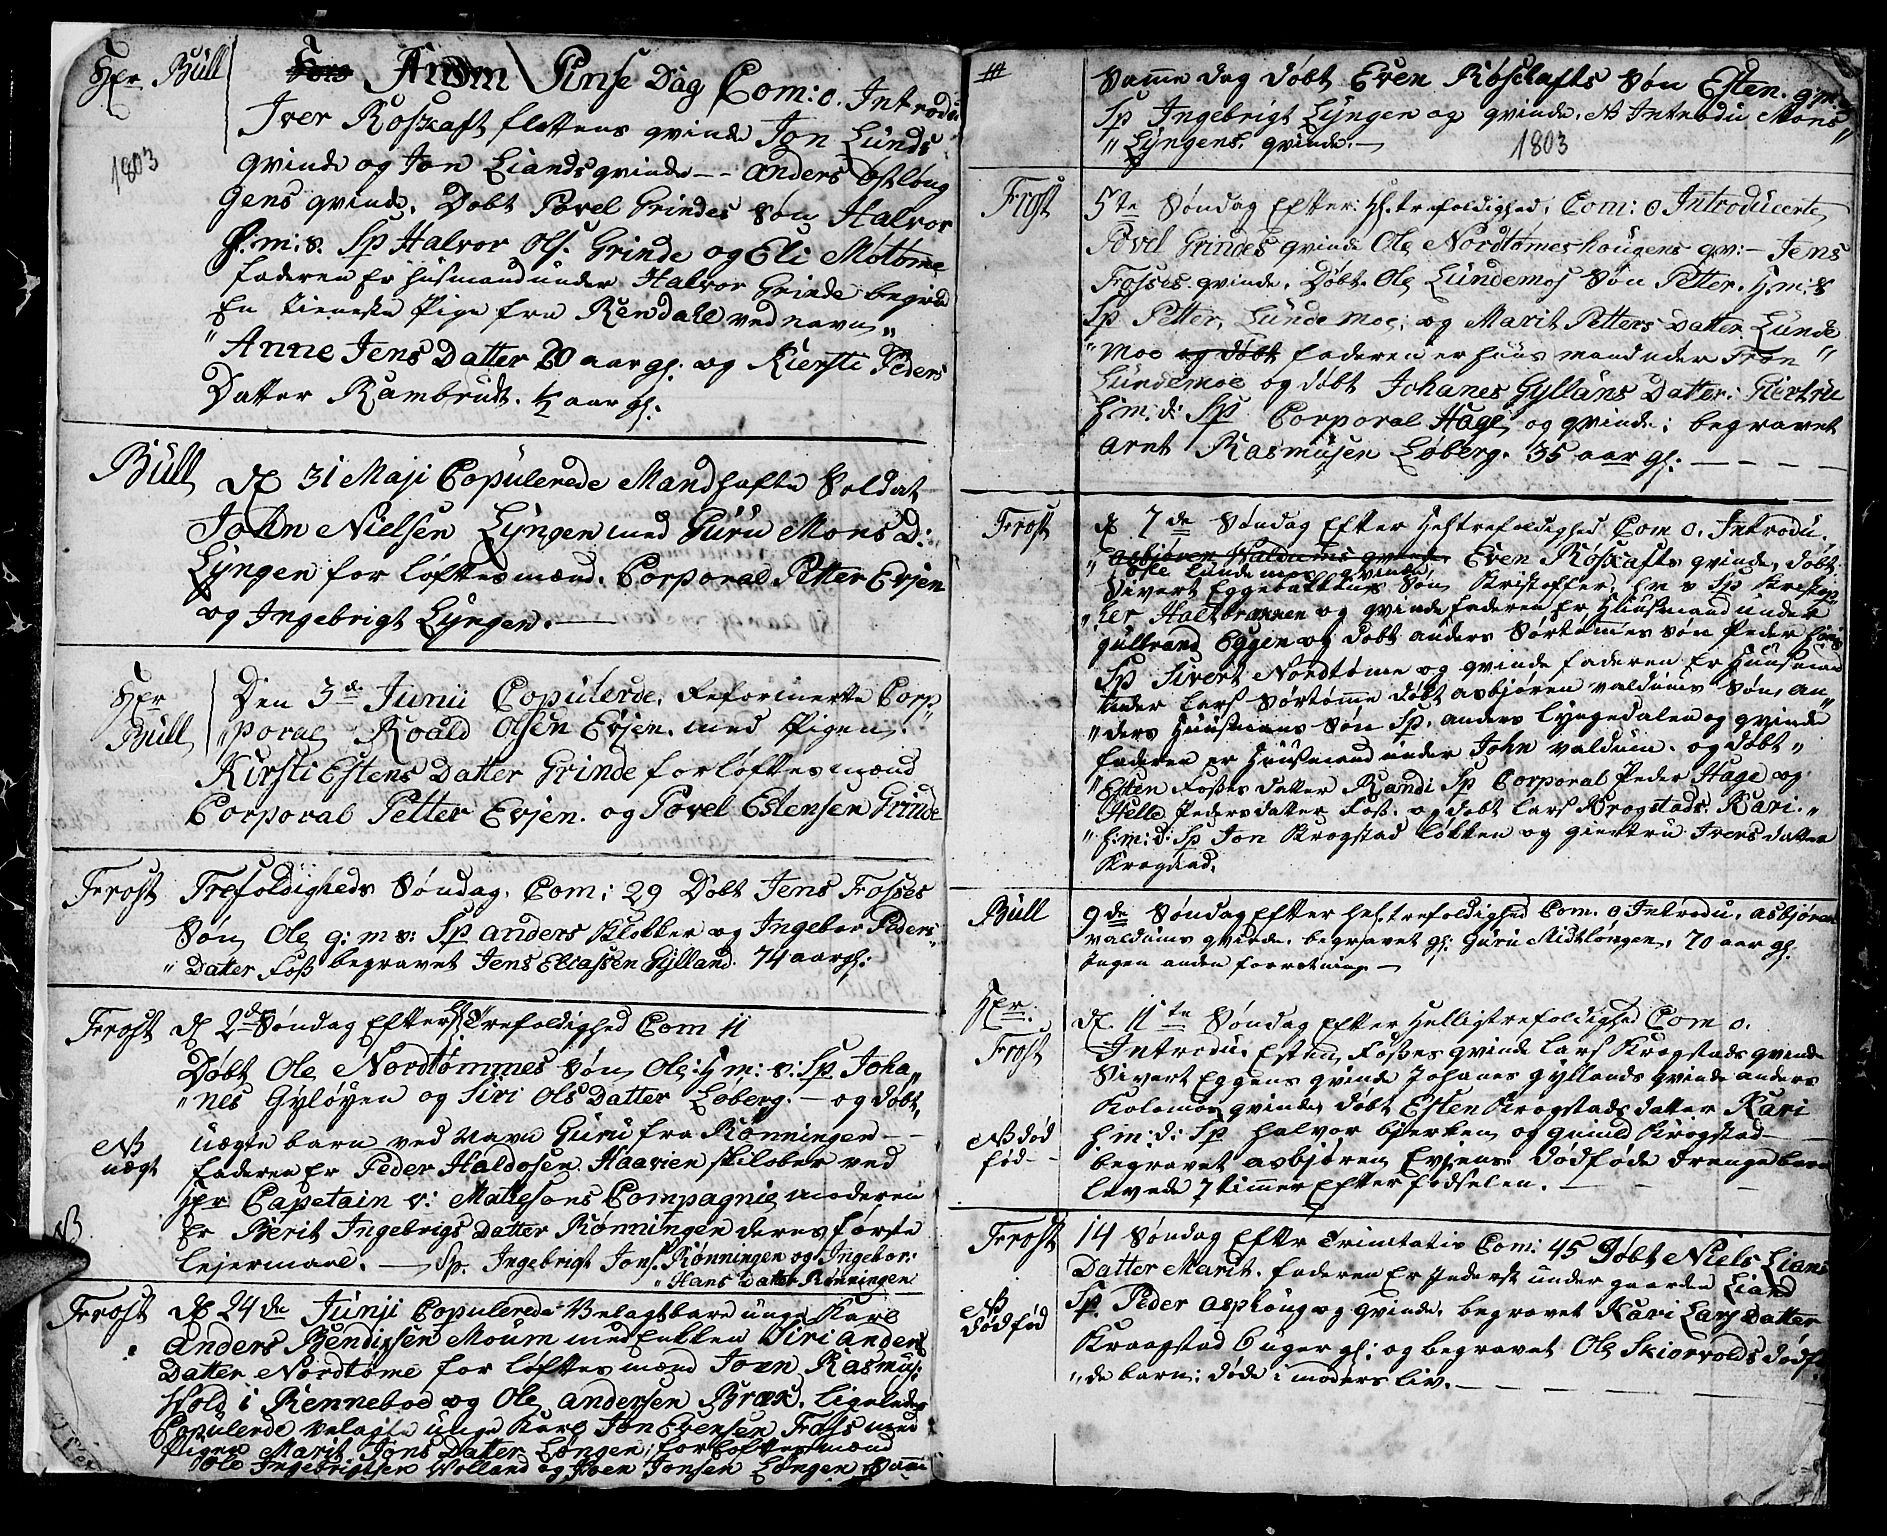 Hr. Büll
1803
Anden Pinse Dag Com: 0. Introdu
Iver Roskaft slettens qvinde Jon Lunds
qvinde og Jon Liands qvinde -- Anders Østlöng
gens qvinde. Döbt Povel Grindes Søn Halvor
H:m:s. Sp Halvor Ols. Grinde og Eli Motömme
faderen er Husmand under Halvor Grinde begravd
En tieneste Pige fra Rendahl ved navn
" Anne Jens Datter 20 aar gl. og Kiersti Peders
Datter Rambrudt. ½ aar gl.
Büll
D 31 Maji Copulerede Mandhafte Soldat
John Nielsen Lyngen med Guru Mons D:
Lyngen for løftesmænd. Corporal Petter Evjen
og Ingebrigt Lyngen.
Hr
Büll
Den 3de Junii Copulerde. Reforimerte Corp
"poral Roald Olsen Evjen. med Pigen.
Kirsti Estens Datter Grinde forløftesmænd
Corporal Petter Evjen. og Povel Estensen Grinde
Frost
Trefoldigheds Søndag. Com: 29 Döbt Jens Fosses
Søn Ole g:m:s: Sp Anders Klokker og Ingebor Peders
" Datter Foss begravet Jens Eliassen Gylland. 74 aar gl:
Frost
D 2de Søndag Efter Hl. Trefoldighed Com 11
Døbt Ole Nordtömmes Søn Ole: H m: s: Sp Joha
" nes Gyløyen og Siri Ols Datter Løberg. - og døbt
NB
uægt
uægte barn ved Navn Guru fra Rønningen --
faderen Er Peder Haldosen Haarien skiløber ved
Hr Capetain v: Mattesons Compagnie moderen
NB
Er Berit Ingebrigs Datter Rønningen deres første
Leiermaal. - Sp. Ingebrigt Jons. Rønningen og Ingebor:
" Hans Datter Rønningen
Frost
D 24de Junji Copulerede Velagtbare unge Karl
Anders Bendixsen Moum med Enkken Siri Anders
Datter Nordtøme for løftes mænd Joen Rasmus.
Wold i Rennebod og Ole Andersen Bræk. ligeledes
Copulerde Velagte unge Karl Jon Evensen Foss med
Pigen Marit Jons Datter Løngen; for løftes mænd
Ole Ingebrigtsen Volland og Joen Jonsen Løngen
Samme dag døbt Even Røskafts Søn Esten. g:m:
Sp Ingebrigt Lyngen og qvinde. NB Introdu Mons
" Lyngens. qvinde. -
1803
Frost
5te Søndag Efter: Hl. trefoldighed. Com: 0 Introducerte
Povel Grindes qvinde Ole Nordtømeshougens qv: - Jens
Fosses qvinde. Døbt. Ole Lundemos Søn Petter. H:m:s
Sp Petter Lunde moe; og Marit Petters Datter Lunde
" Moe og døbt faderen er huus mand under Tron
Lundemoe og døbt Johanes Gyllans Datter: Giertru
H:m:d: Sp Corporal Hage og qvinde; begravet
Arnt Rasmusen Løberg. 35 aar gl: - - -
Frost
D 7de Søndag Efter Hl: trefoldighed, Com 0. Introdu.
" Asbjøren Waldums qvinde Even Roskafts qvinde, døbt
Ole Lundemoes qvinde
Sivert Eggebakkens Søn Kristoffer, Hm s Sp Kristop
" her Haltbrækken og qvinde faderen Er Huusmand under
gulbrand Eggen og døbt anders Sørtømes søn Peder H:m:s
Sp Sivert Nordtøme og qvinde faderen Er Huusman
under Lars Sørtømme døbt asbjøren valdums Søn, An
" ders Huusmans Søn Sp. anders Lyngedalen og qvinde
faderen er Huusmand under John valdum. og døbt
" Esten Fosses datter Randi Sp Corporal Peder Hage og
" Helle Pedersdatter Foss. og døbt Lars Krogstads. Kari.
" H:m:d: Sp Jon Krogstad Løkken og giertru Ivers datter
Krogstad.
Büll
9de Søndag Efter Hl: trefoldighed Com. 0. Introdu. asbjøren
valdums qvinde. begravet gl: Guru Midtløngen. 70 aar gl.
Ingen anden forretning -
Hr.
Frost
D 11te Søndag Efter Helligtrefoldighed Com 0.
Introdu. Esten Fosses qvinde Lars Krogstads qvinde
Sivert Eggens qvinde Johanes gyllands qvinde anders
Kolomos qvinde, døbt Esten Krogstads datter Kari
NB død
fød -
H:m:d: Sp halvor bierken og gunild Krogstad
begravet asbjøren Evjens dødføde drengebarn
levede 7 timmer Efter fødselen. -
Frost
14 Søndag Eftr Trinitatis Com: 45 Døbt Niels Lians
Datter Marit. faderen Er Inderst under gaarden Liand
NB
dødfød
Sp. Peder Asphoug og qvinde, begravet Kari Lars Datter
Kraagstad 6 uger gl: og begravet Ole Skiorvolds dødf
" de barn; døde i moders liv. -